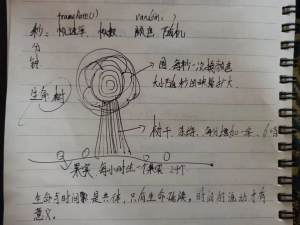 frameRate() random()
秒: 帧速率, 帧数 颜色 随机
分
钟
圆: 每秒一次换颜色
大小随秒的映射扩大
生命树
树干: 连线, 每分增加一条, 60条
果实 每小时出一个果实 24个
生命与时间聚是共体, 只有生命确续, 时间的流动才有
意义。